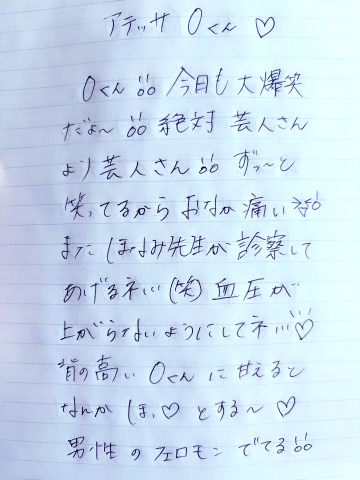 アテッサ Oくん ♡
Oくん!! 今日も大爆笑
だよ〜!! 絶対 芸人さん
より芸人さん!! ずっ〜と
笑ってるからおなか痛い
また ほなみ先生が診察して
あげるネ!!! (笑) 血圧が
上がらないようにしてネ!!!♡
背の高い Oくんに甘えると
なんか ほっ♡ とする〜♡
男性のフェロモンでてる!!